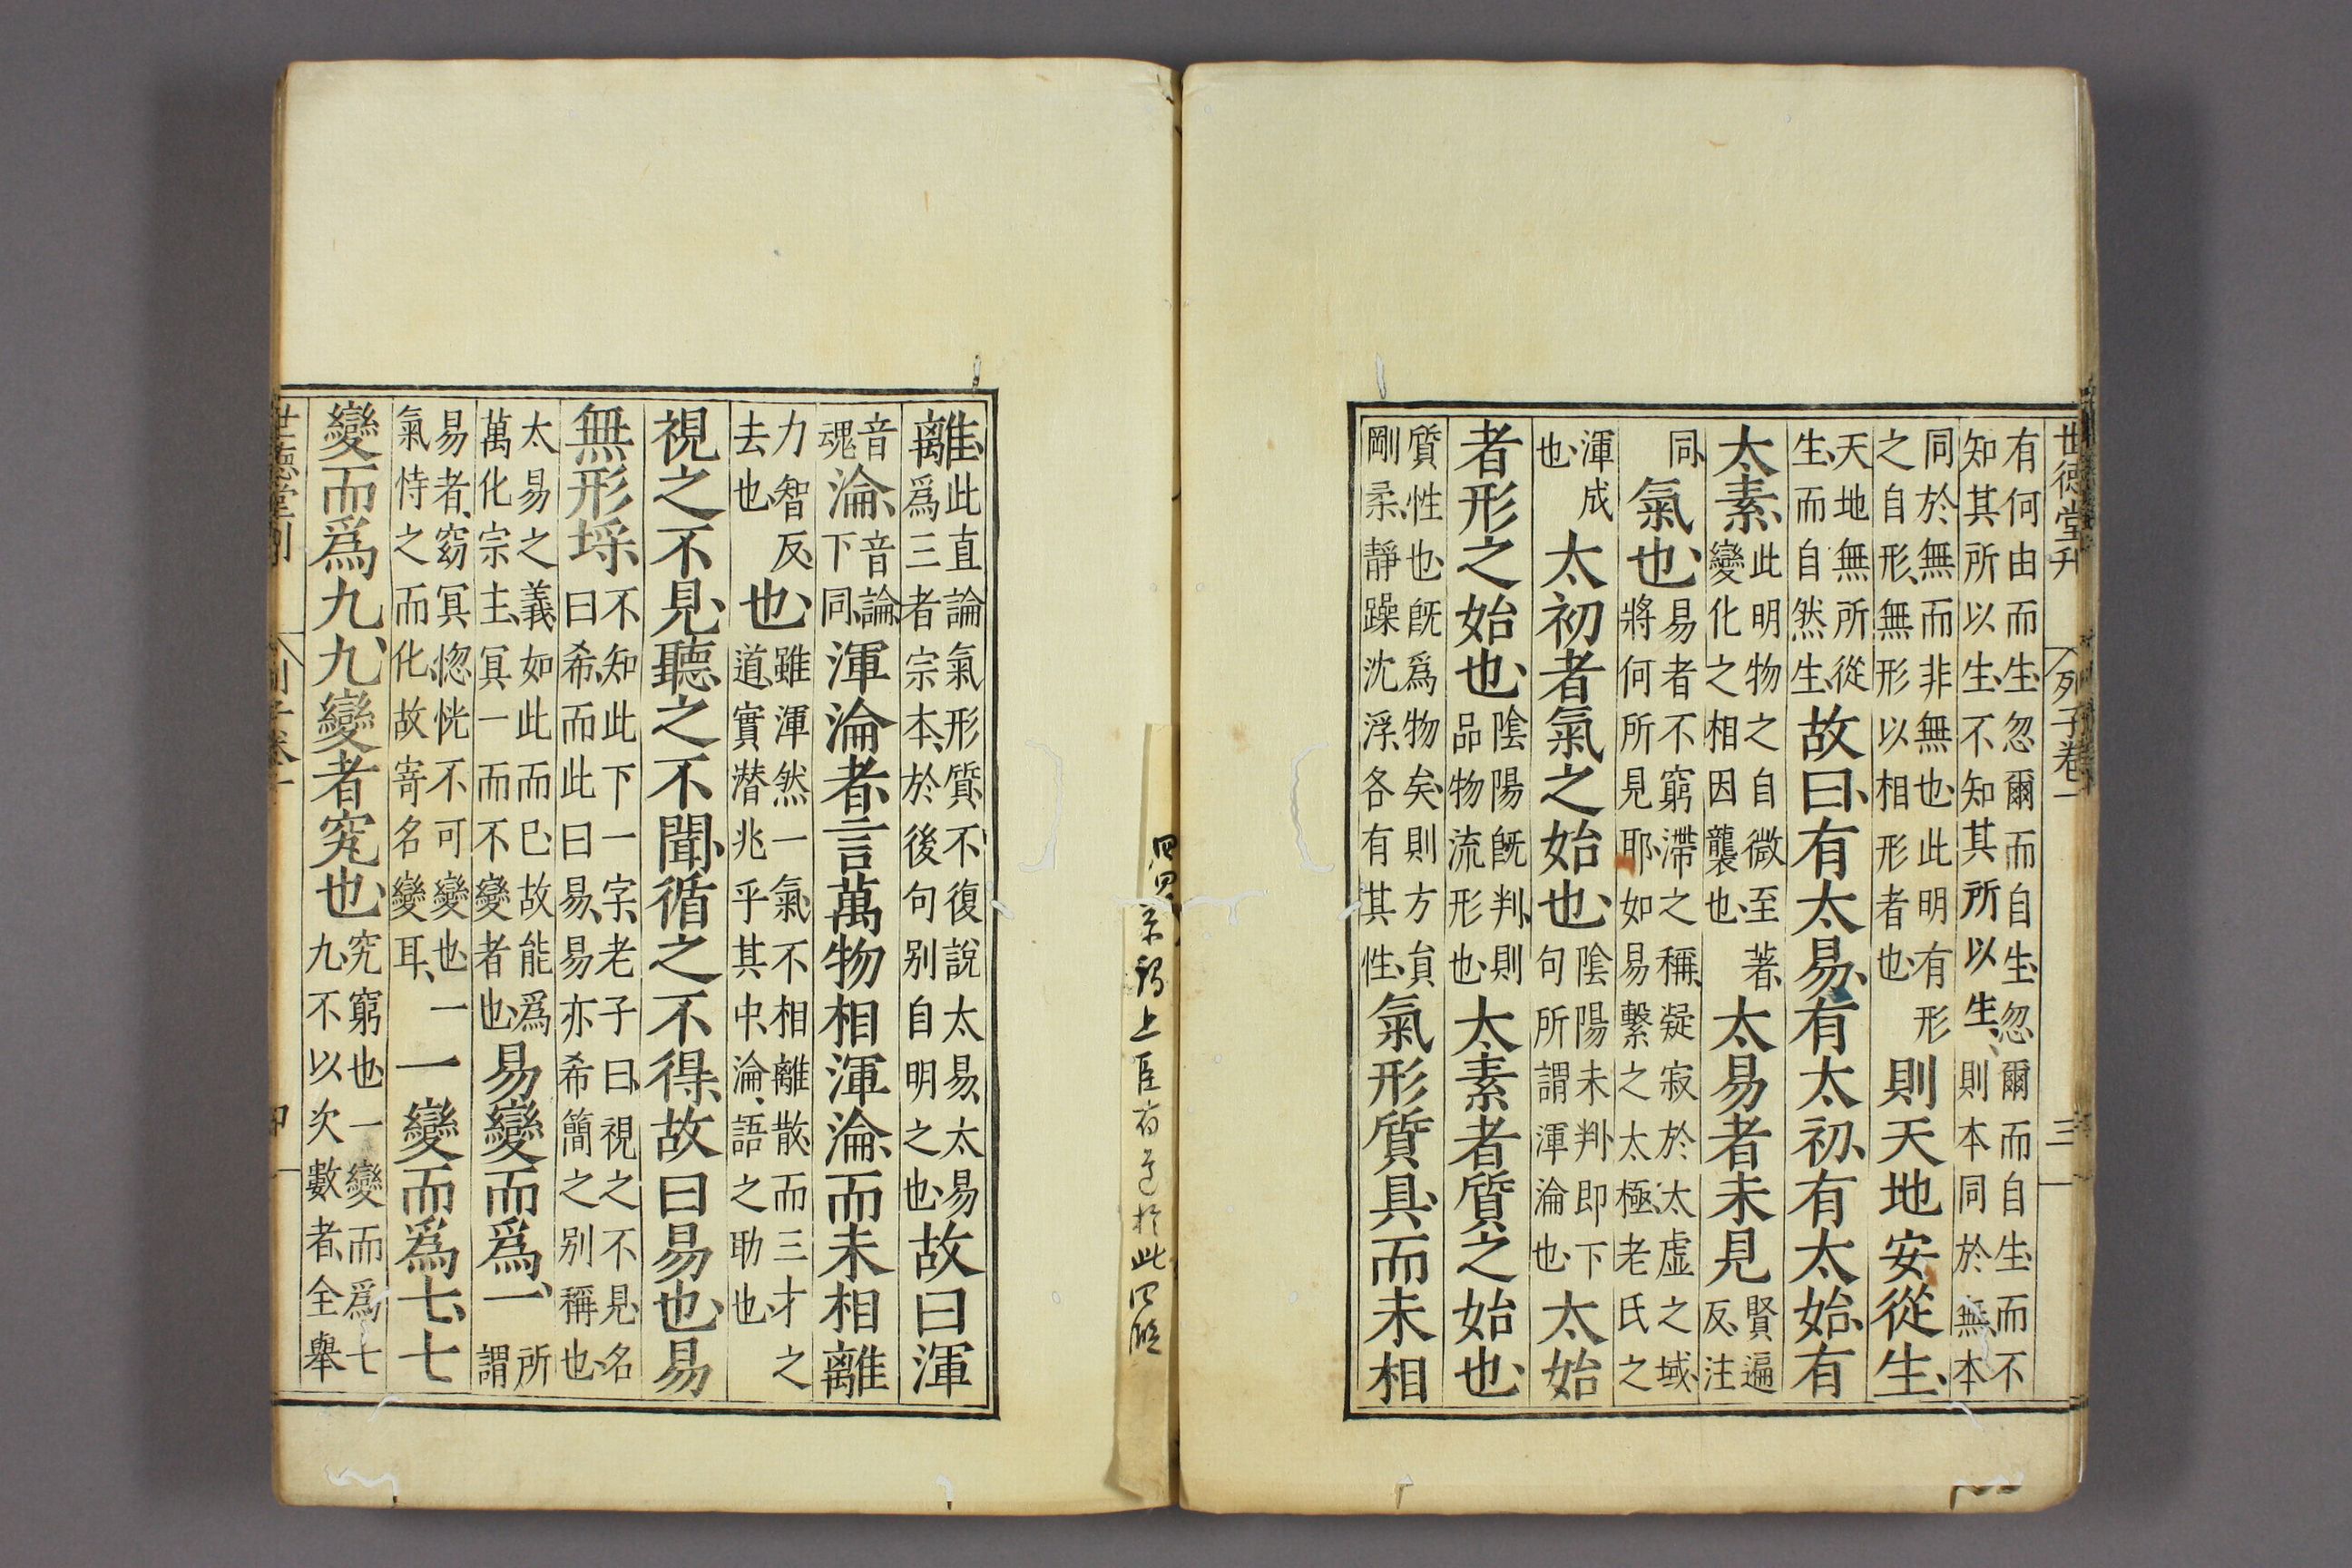 世德堂刋 列子卷一 三
有何由而生忽爾而自生忽爾而自生而不知其所以生不知其所以生則本同於無本
同於無而非無也此明有形之自形無形以相形者也則天地安從生
天地無所從生而自然生故曰有太易有太初有太始有
太素此明物之自微至著變化之相因襲也太易者未見賢遍反注
同氣也易者不窮滯之稱凝寂於太虛之域將何所見耶如易繫之太極老氏之
渾成也太初者氣之始也陰陽未判即下句所謂渾淪也太始
者形之始也陰陽旣判則品物流形也太素者質之始也
質性也旣爲物矣則方員剛柔靜躁沈浮各有其性氣形質具而未相
離此直論氣形質不復說太易太易爲三者宗本於後句别自明之也故曰渾
音魂淪音論下同渾淪者言萬物相渾淪而未相離
力智反去也也雖渾然一氣不相離散而三才之道實潜兆乎其中淪語之助也
視之不見聽之不聞循之不得故曰易也易
無形埒不知此下一字老子曰視之不見名曰希而此曰易易亦希簡之别稱也
太易之義如此而已故能爲萬化宗主冥一而不變者也易變而爲一所謂
易者窈冥惚恍不可變也一氣恃之而化故寄名變耳一變而爲七七
變而爲九九變者究也究窮也一變而爲七九不以次數者全舉
世德堂刋 列子卷一 四